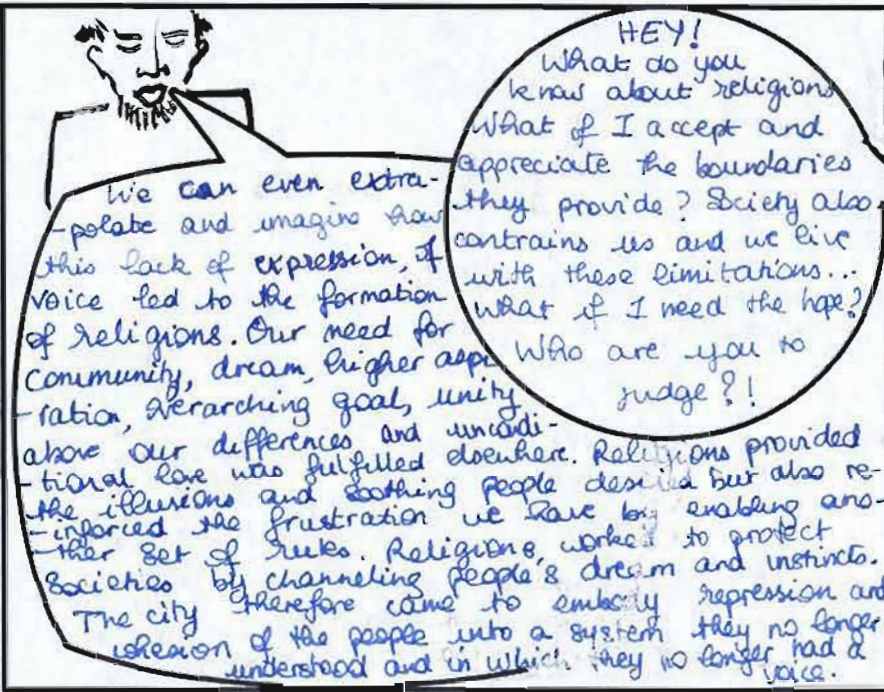 We can even extra-
-polate and imagine how
this lack of expression, of
voice led to the formation
of religions. Our need for
community, dream, higher aspi
-ration, overarching goal, unity
above our differences and uncondi-
-tional love was fulfilled elsewhere. Religions provided
the illusions and soothing people desired but also re-
-inforced the frustration we have by enabling ano-
-ther set of rules. Religions worked to protect
societies by channeling people's dream and instincts.
The city therefore came to embody repression and
of the people into a system they no longer
understood and in which they no longer had a
voice.
HEY!
What do you
know about religions
What if I accept and
appreciate the boundaries
they provide? Society also
contrains us and we live
with these limitations...
What if I need the hope?
Who are you to
judge?!